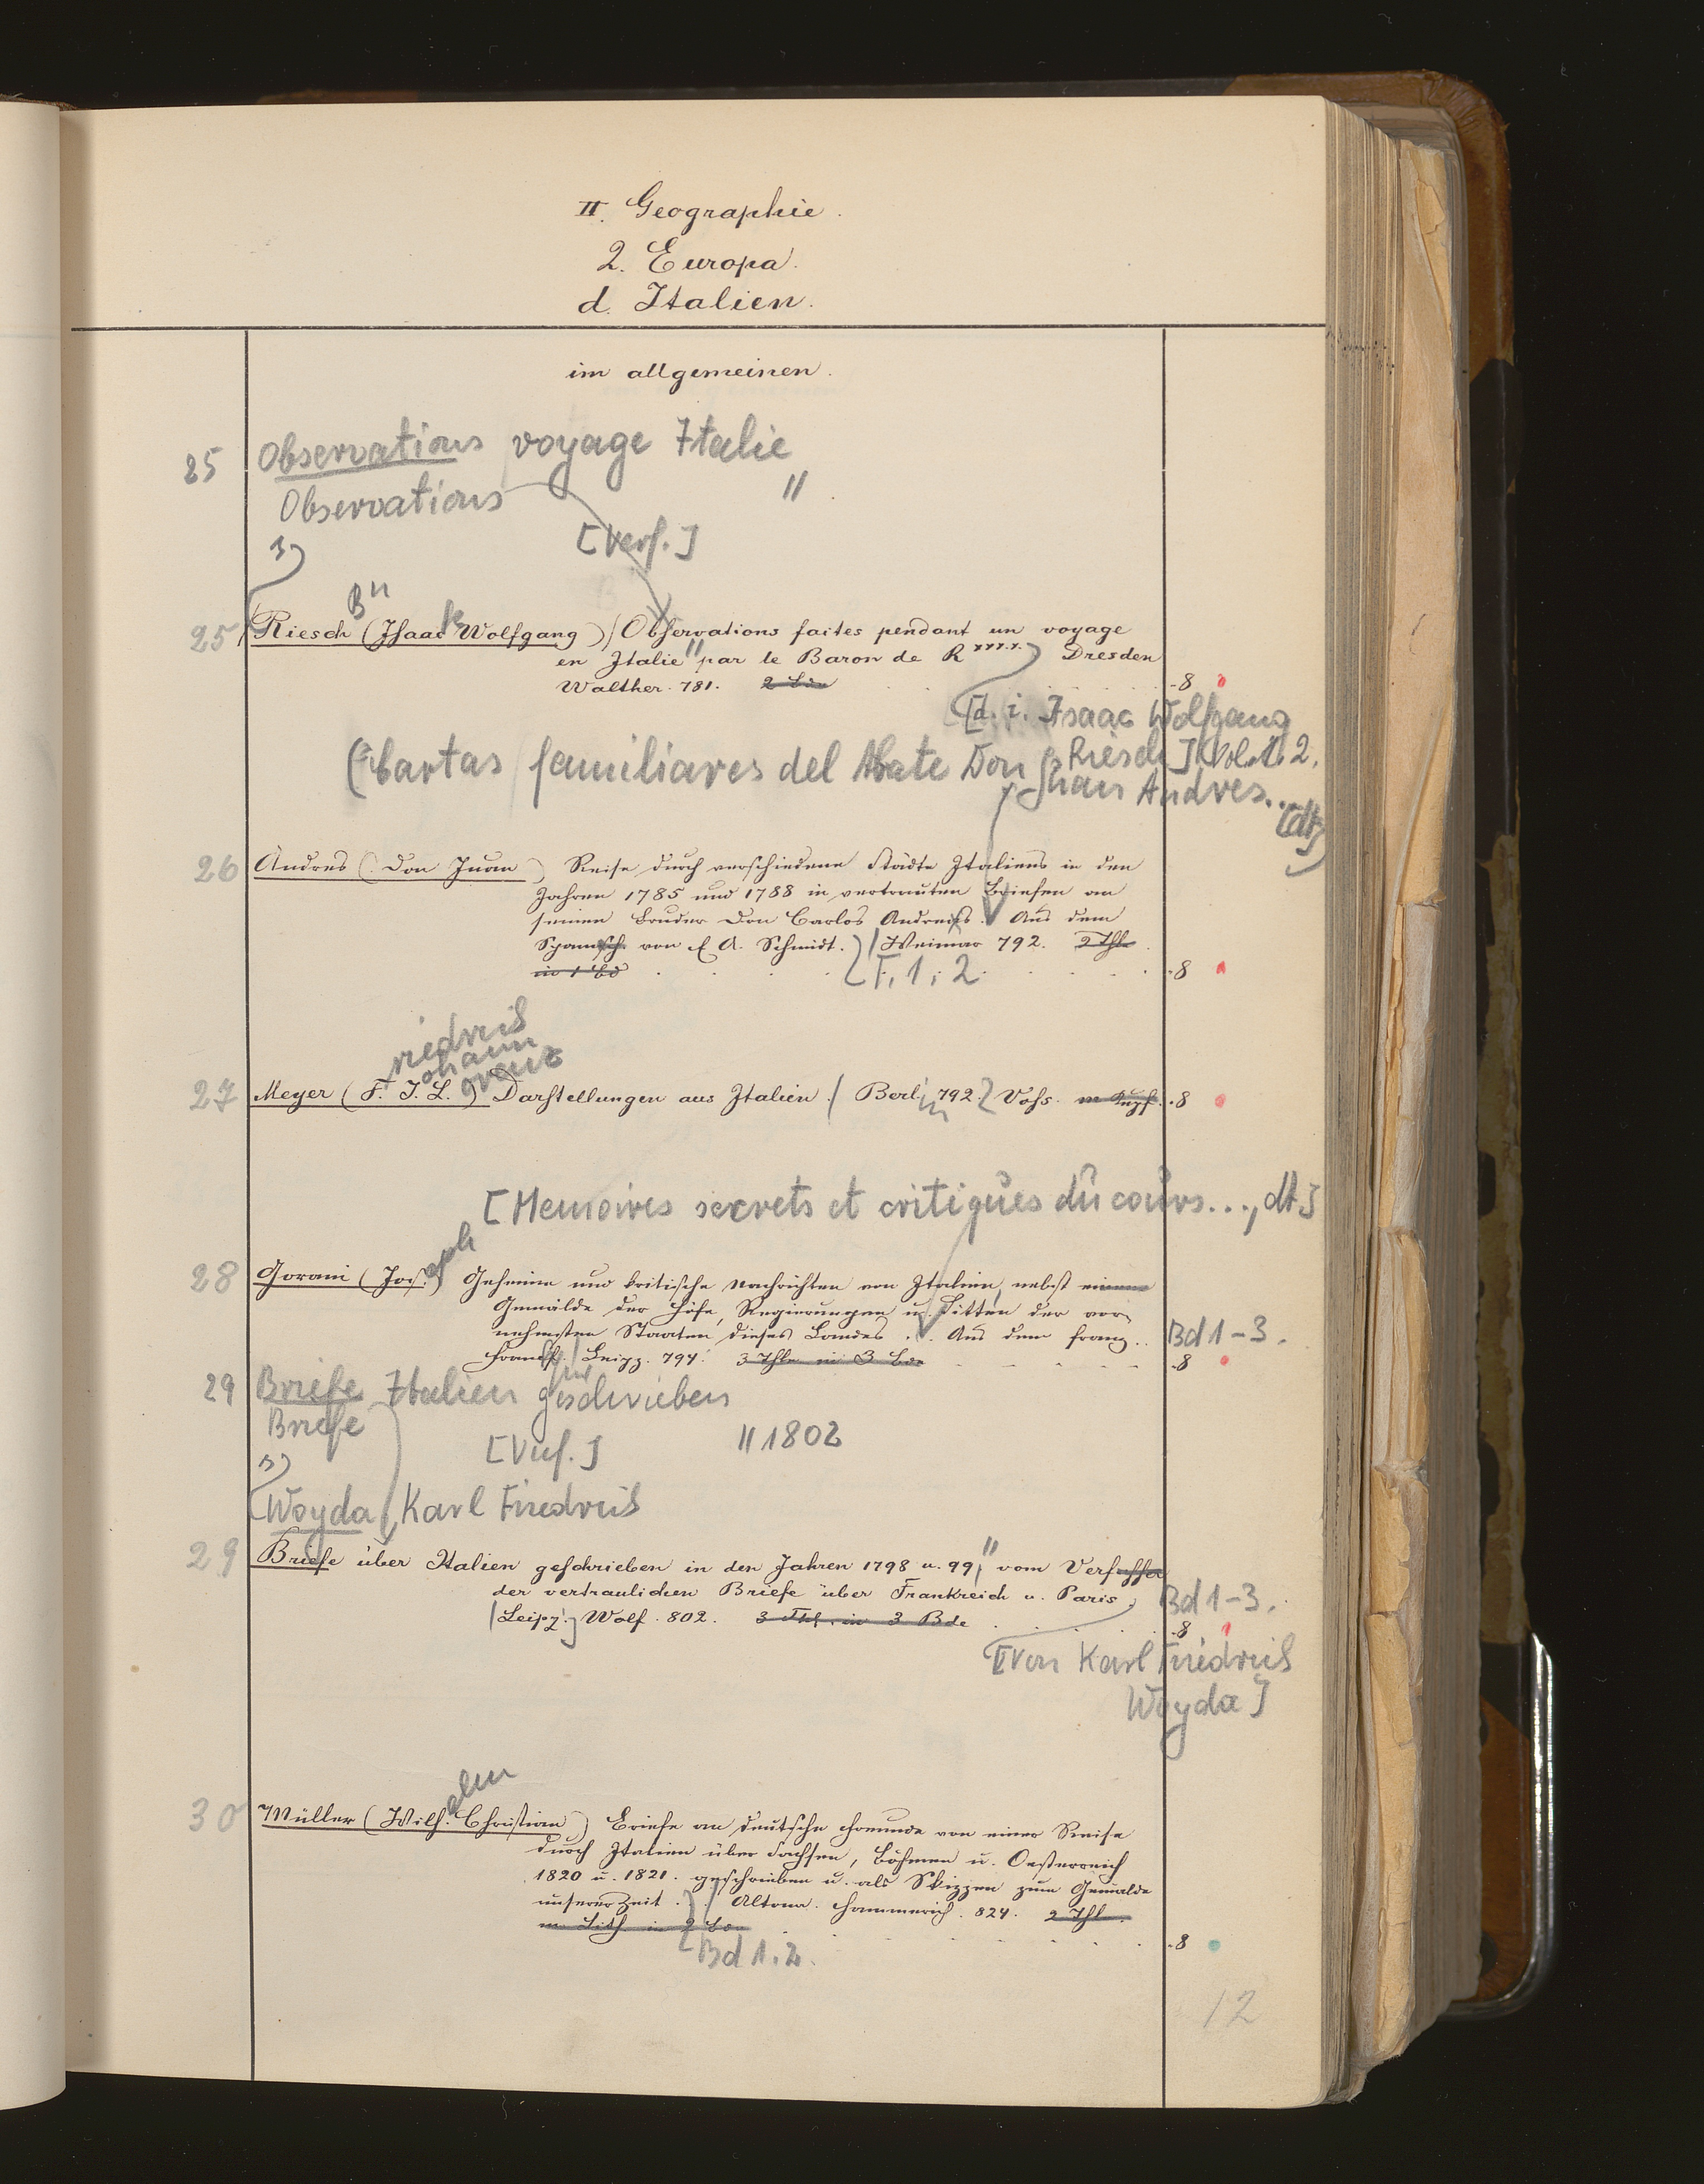 II. Geographie.
2. Europa.
d. Italien.
im allgemeinen.
25 Observations voyage Italie
Observations "
[Verf.]
25 Riesch (Isaac Wolfgang) Observations faites pendant un voyage
en Italie" par le Baron de R xxx.x. Dresden
Walther. 781. 2 Bde
.8
[d. i. Isaac Wolfgang
Riesch] Vol. 1. 2.
(Cartas familiares del Abate Don Juan Andres...
[dt]
26 Andres (Don Juan) Reise durch verschiedene Städte Italiens in den
Jahren 1785 und 1788 in vertrauten Briefen an
seinen Bruder Don Carlos Andreißs. Aus dem
Spanisch. von E. A. Schmidt.) / Weimar 792. 2 Thle
in 1 Bd .8
T. 1. 2.
riedrich
ohann
orenz
27 Meyer (F. J. L.) Darstellungen aus Italien / Berl. 792. Voss. m Kupf. .8
in
[Memoires secrets et critiques du cours..., dt]
eph
28 Gorani (Jos.) Geheime und kritische Nachrichten von Italien, nebst einem
Gemälde der Höfe, Regierungen u. Sitten der vor-
nehmsten Staaten dieses Landes. Aus dem franz..
Bd 1-3.
Leipz. 794. 3 Thle in 3 Bde .8
29 Briefe Italien geschrieben
Briefe
[Verf.] " 1802
Woyda, Karl Friedrich
29 Briefe über Italien geschrieben in den Jahren 1798 u. 99," vom Verfasser
der vertraulichen Briefe über Frankreich u. Paris.
Bd 1-3.
Leipz. Wolf. 802. 3 Thl. in 3 Bde .8
[Von Karl Friedrich
Woyda]
elm
30 Müller (Wilh. Christian) Briefe an deutsche Freunde von einer Reise
durch Italien über Sachsen, Böhmen u. Oesterreich
1820 u. 1821. geschrieben u. als Skizzen zum Gemälde
unserer Zeit. / Altona. Hammerich. 824. 2 Thl.
m Lith. in 2 Bde .8
Bd 1. 2.
12